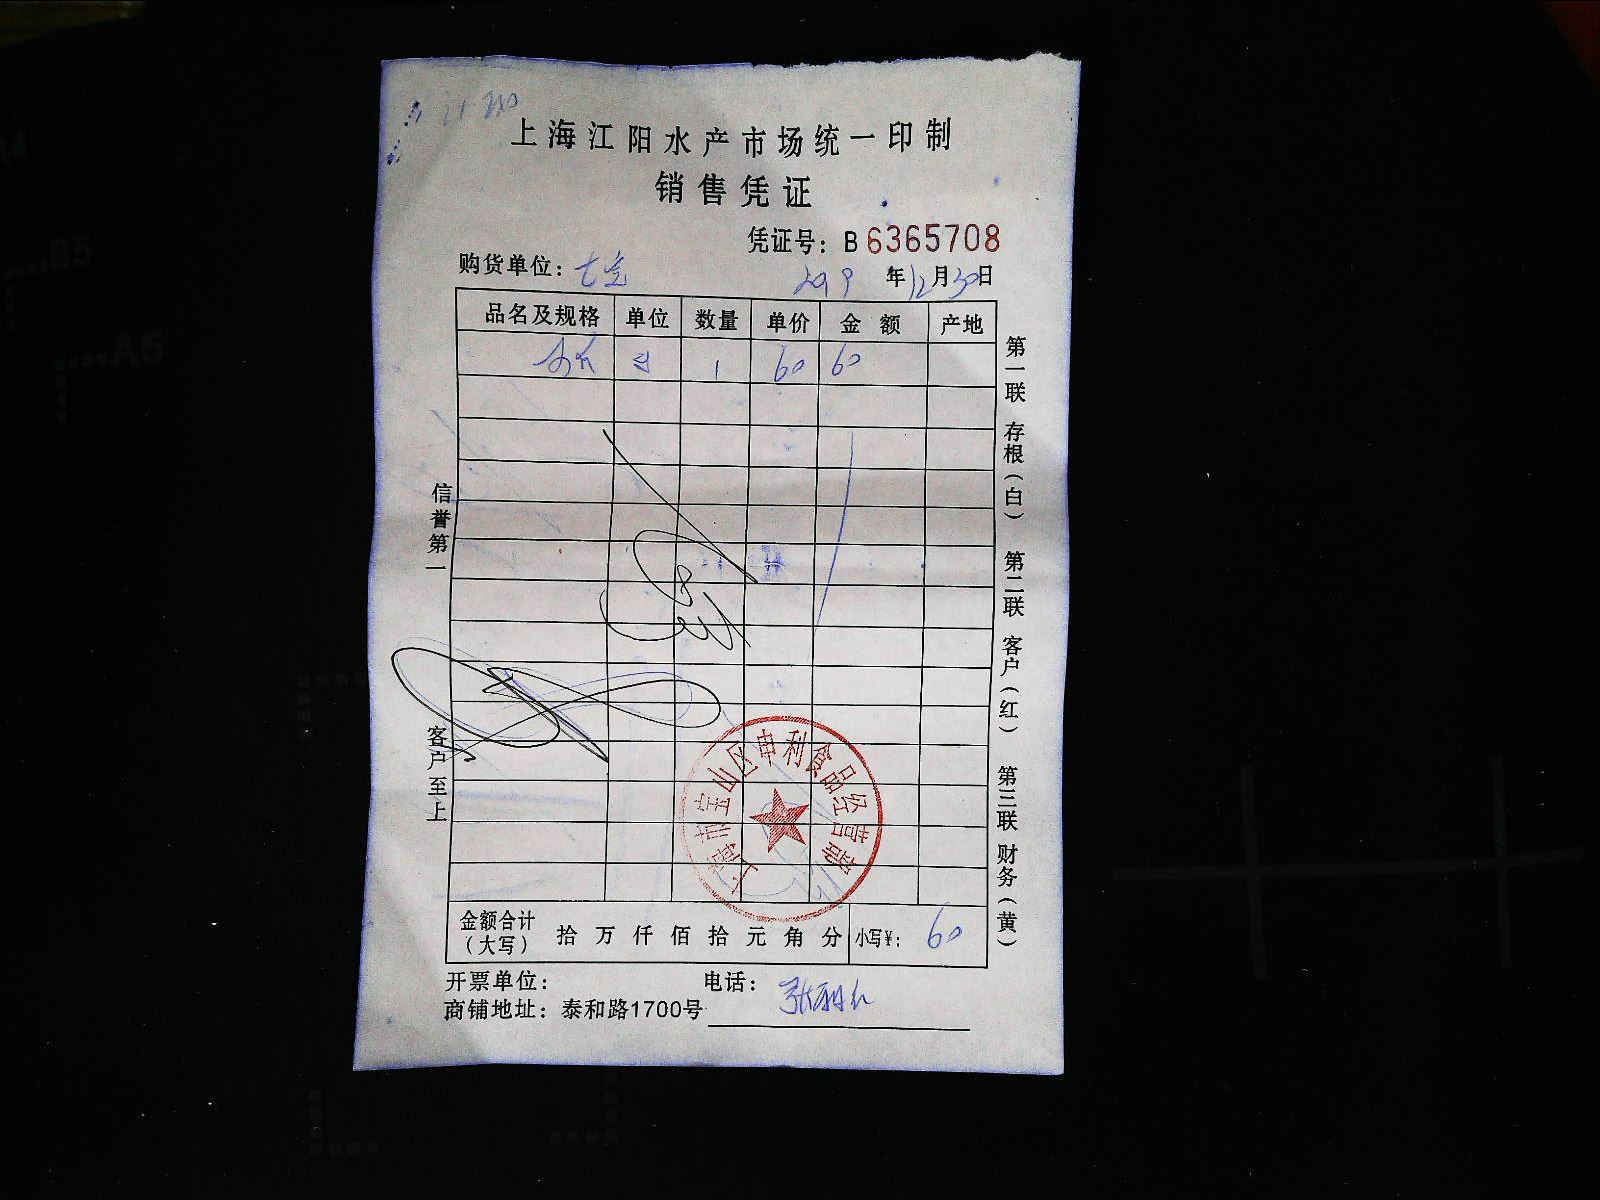 上海江阳水产市场统一印制
销售凭证
凭证号：B 6365708
购货单位：
2019 年 12 月 30 日
品名及规格 单位 数量 单价 金额 产地
1 60 60
信誉第一
客户至上
第一联 存根（白） 第二联 客户（红） 第三联 财务（黄）
上海市宝山区申利食品经营部
金额合计（大写） 拾 万 仟 佰 拾 元 角 分 小写¥： 60
开票单位： 电话：
商铺地址：泰和路1700号